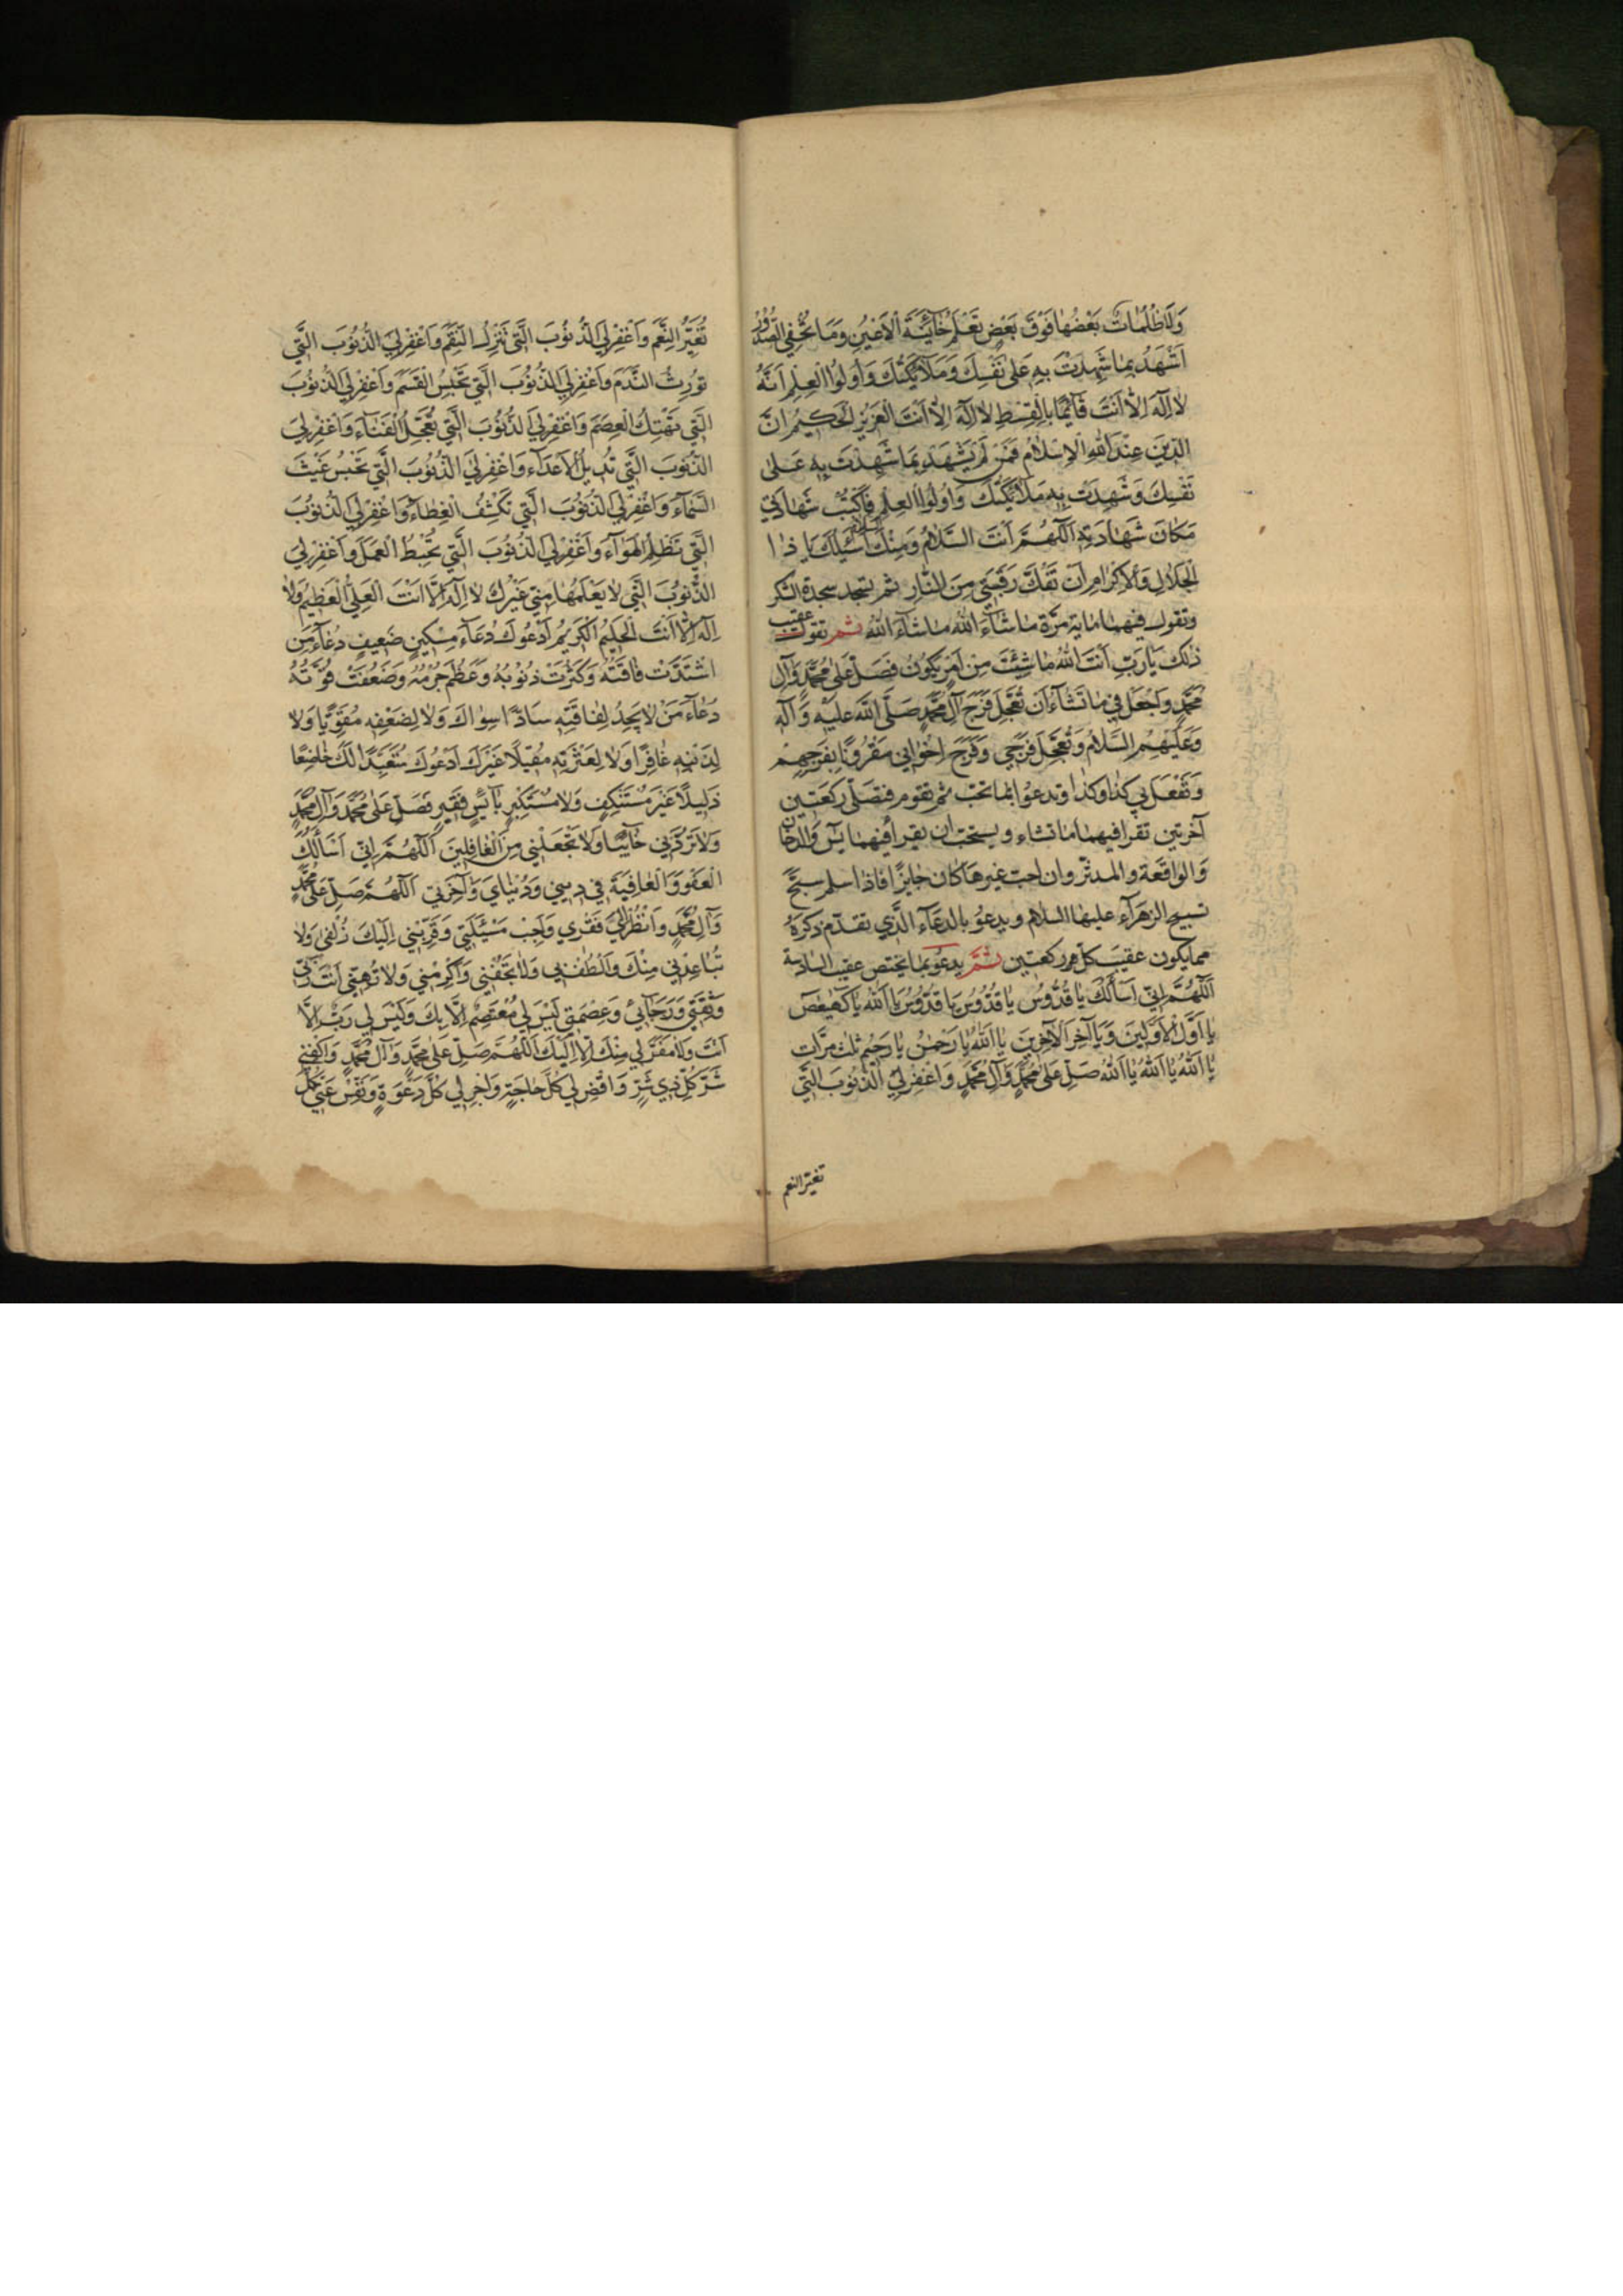 وَلَا ظُلُمَاتٌ بَعْضُهَا فَوْقَ بَعْضٍ تَعْلَمُ خَآئِنَةَ الْاَعْيُنِ وَمَا تُخْفِي الصُّدُورُ
اَشْهَدُ بِمَا شَهِدْتَ بِهِ عَلَى نَفْسِكَ وَمَلَآئِكَتُكَ وَاُولُوا الْعِلْمِ اَنَّهُ
لَا اِلٰهَ اِلَّا اَنْتَ قَآئِمًا بِالْقِسْطِ لَا اِلٰهَ اِلَّا اَنْتَ الْعَزِيزُ الْحَكِيمُ اِنَّ
الدِّينَ عِنْدَ اللهِ الْاِسْلَامُ فَمَنْ لَمْ يَشْهَدْ بِمَا شَهِدْتَ بِهِ عَلَى
نَفْسِكَ وَشَهِدَتْ بِهِ مَلَآئِكَتُكَ وَاُولُوا الْعِلْمِ فَاكْتُبْ شَهَادَتِي
مَكَانَ شَهَادَتِهِ اَللّٰهُمَّ اَنْتَ السَّلَامُ وَمِنْكَ السَّلَامُ اَسْئَلُكَ يَا ذَا
الْجَلَالِ وَالْاِكْرَامِ اَنْ تَفُكَّ رَقَبَتِي مِنَ النَّارِ ثم تسجد سجدة الشكر
وتقول فيهما ماية مرّة مَا شَاءَ اللهُ مَا شَاءَ اللهُ ثم تقول عقيب
ذلك يَا رَبِّ اَنْتَ اللهُ مَا شِئْتَ مِنْ اَمْرٍ يَكُونُ فَصَلِّ عَلَى مُحَمَّدٍ وَآلِ
مُحَمَّدٍ وَاجْعَلْ لِي فِيمَا تَشَآءُ اَنْ تُعَجِّلَ فَرَجَ آلِ مُحَمَّدٍ صَلَّى اللهُ عَلَيْهِ وَآلِهِ
وَعَلَيْهِمُ السَّلَامُ وَتُعَجِّلَ فَرَجِي وَفَرَجَ اِخْوَانِي مَقْرُونًا بِفَرَجِهِمْ
وَتَفْعَلَ بِي كَذَا وَكَذَا وتدعوا بما تحبّ ثم تقوم فتصلّي ركعتين
آخرتين تقرا فيهما ما تشاء ويستحبّ ان يقرأ فيهما يس والدخان
والواقعة والمدثّر وان احبّ غيرها كان جايزًا فاذا سلم سبّح
تسبيح الزهرآء عليها السلام ويدعوُ بالدعآء الّذي تقدّم ذكرهُ
مما يكون عقيب كلّ ركعتين ثمّ يدعو بما يختص عقيب السادسة
اَللّٰهُمَّ اِنِّي اَسْأَلُكَ يَا قُدُّوسُ يَا قُدُّوسُ يَا قُدُّوسُ يَا اَللهُ يَا كهيعص
يَا اَوَّلَ الْاَوَّلِينَ وَيَا آخِرَ الْآخِرِينَ يَا اَللهُ يَا رَحْمٰنُ يَا رَحِيمُ ثلث مرّات
يَا اَللهُ يَا اَللهُ يَا اَللهُ صَلِّ عَلَى مُحَمَّدٍ وَآلِ مُحَمَّدٍ وَاغْفِرْ لِيَ الذُّنُوبَ الَّتِي
تغيّر النعم
تُغَيِّرُ النِّعَمَ وَاغْفِرْ لِيَ الذُّنُوبَ الَّتِي تُنْزِلُ النِّقَمَ وَاغْفِرْ لِيَ الذُّنُوبَ الَّتِي
تُورِثُ النَّدَمَ وَاغْفِرْ لِيَ الذُّنُوبَ الَّتِي تَحْبِسُ الْقَسَمَ وَاغْفِرْ لِيَ الذُّنُوبَ
الَّتِي تَهْتِكُ الْعِصَمَ وَاغْفِرْ لِيَ الذُّنُوبَ الَّتِي تُعَجِّلُ الْفَنَآءَ وَاغْفِرْ لِيَ
الذُّنُوبَ الَّتِي تُدِيلُ الْاَعْدَآءَ وَاغْفِرْ لِيَ الذُّنُوبَ الَّتِي تَحْبِسُ غَيْثَ
السَّمَآءِ وَاغْفِرْ لِيَ الذُّنُوبَ الَّتِي تَكْشِفُ الْغِطَآءَ وَاغْفِرْ لِيَ الذُّنُوبَ
الَّتِي تُظْلِمُ الْهَوَآءَ وَاغْفِرْ لِيَ الذُّنُوبَ الَّتِي تُحْبِطُ الْعَمَلَ وَاغْفِرْ لِيَ
الذُّنُوبَ الَّتِي لَا يَعْلَمُهَا مِنِّي غَيْرُكَ لَا اِلٰهَ اِلَّا اَنْتَ الْعَلِيُّ الْعَظِيمُ وَلَا
اِلٰهَ اِلَّا اَنْتَ الْحَلِيمُ الْكَرِيمُ اَدْعُوكَ دُعَآءَ مِسْكِينٍ ضَعِيفٍ دُعَآءَ مَنِ
اشْتَدَّتْ فَاقَتُهُ وَكَثُرَتْ ذُنُوبُهُ وَعَظُمَ جُرْمُهُ وَضَعُفَتْ قُوَّتُهُ
دُعَآءَ مَنْ لَا يَجِدُ لِفَاقَتِهِ سَادًّا سِوَاكَ وَلَا لِضَعْفِهِ مُقَوِّيًا وَلَا
لِذَنْبِهِ غَافِرًا وَلَا لِعَثْرَتِهِ مُقِيلًا غَيْرَكَ اَدْعُوكَ مُتَعَبِّدًا لَكَ خَاضِعًا
ذَلِيلًا غَيْرَ مُسْتَنْكِفٍ وَلَا مُسْتَكْبِرٍ بَآئِسٍ فَقِيرٍ فَصَلِّ عَلَى مُحَمَّدٍ وَآلِ مُحَمَّدٍ
وَلَا تَرُدَّنِي خَآئِبًا وَلَا تَجْعَلْنِي مِنَ الْغَافِلِينَ اَللّٰهُمَّ اِنِّي اَسْأَلُكَ
الْعَفْوَ وَالْعَافِيَةَ فِي دِينِي وَدُنْيَايَ وَآخِرَتِي اَللّٰهُمَّ صَلِّ عَلَى مُحَمَّدٍ
وَآلِ مُحَمَّدٍ وَانْظُرْ اِلَى فَقْرِي وَاَجِبْ مَسْئَلَتِي وَقَرِّبْنِي اِلَيْكَ زُلْفَى وَلَا
تُبَاعِدْنِي مِنْكَ وَالْطُفْ بِي وَلَا تَجْفُنِي وَاَكْرِمْنِي وَلَا تُهِنِّي اَنْتَ رَبِّي
وَثِقَتِي وَرَجَآئِي وَعِصْمَتِي لَيْسَ لِي مُعْتَصَمٌ اِلَّا بِكَ وَلَيْسَ لِي رَبٌّ اِلَّا
اَنْتَ وَلَا مَفَرَّ لِي مِنْكَ اِلَّا اِلَيْكَ اَللّٰهُمَّ صَلِّ عَلَى مُحَمَّدٍ وَآلِ مُحَمَّدٍ وَاكْفِنِي
شَرَّ كُلِّ ذِي شَرٍّ وَاقْضِ لِي كُلَّ حَاجَةٍ وَاَجِبْ لِي كُلَّ دَعْوَةٍ وَنَفِّسْ عَنِّي كُلَّ